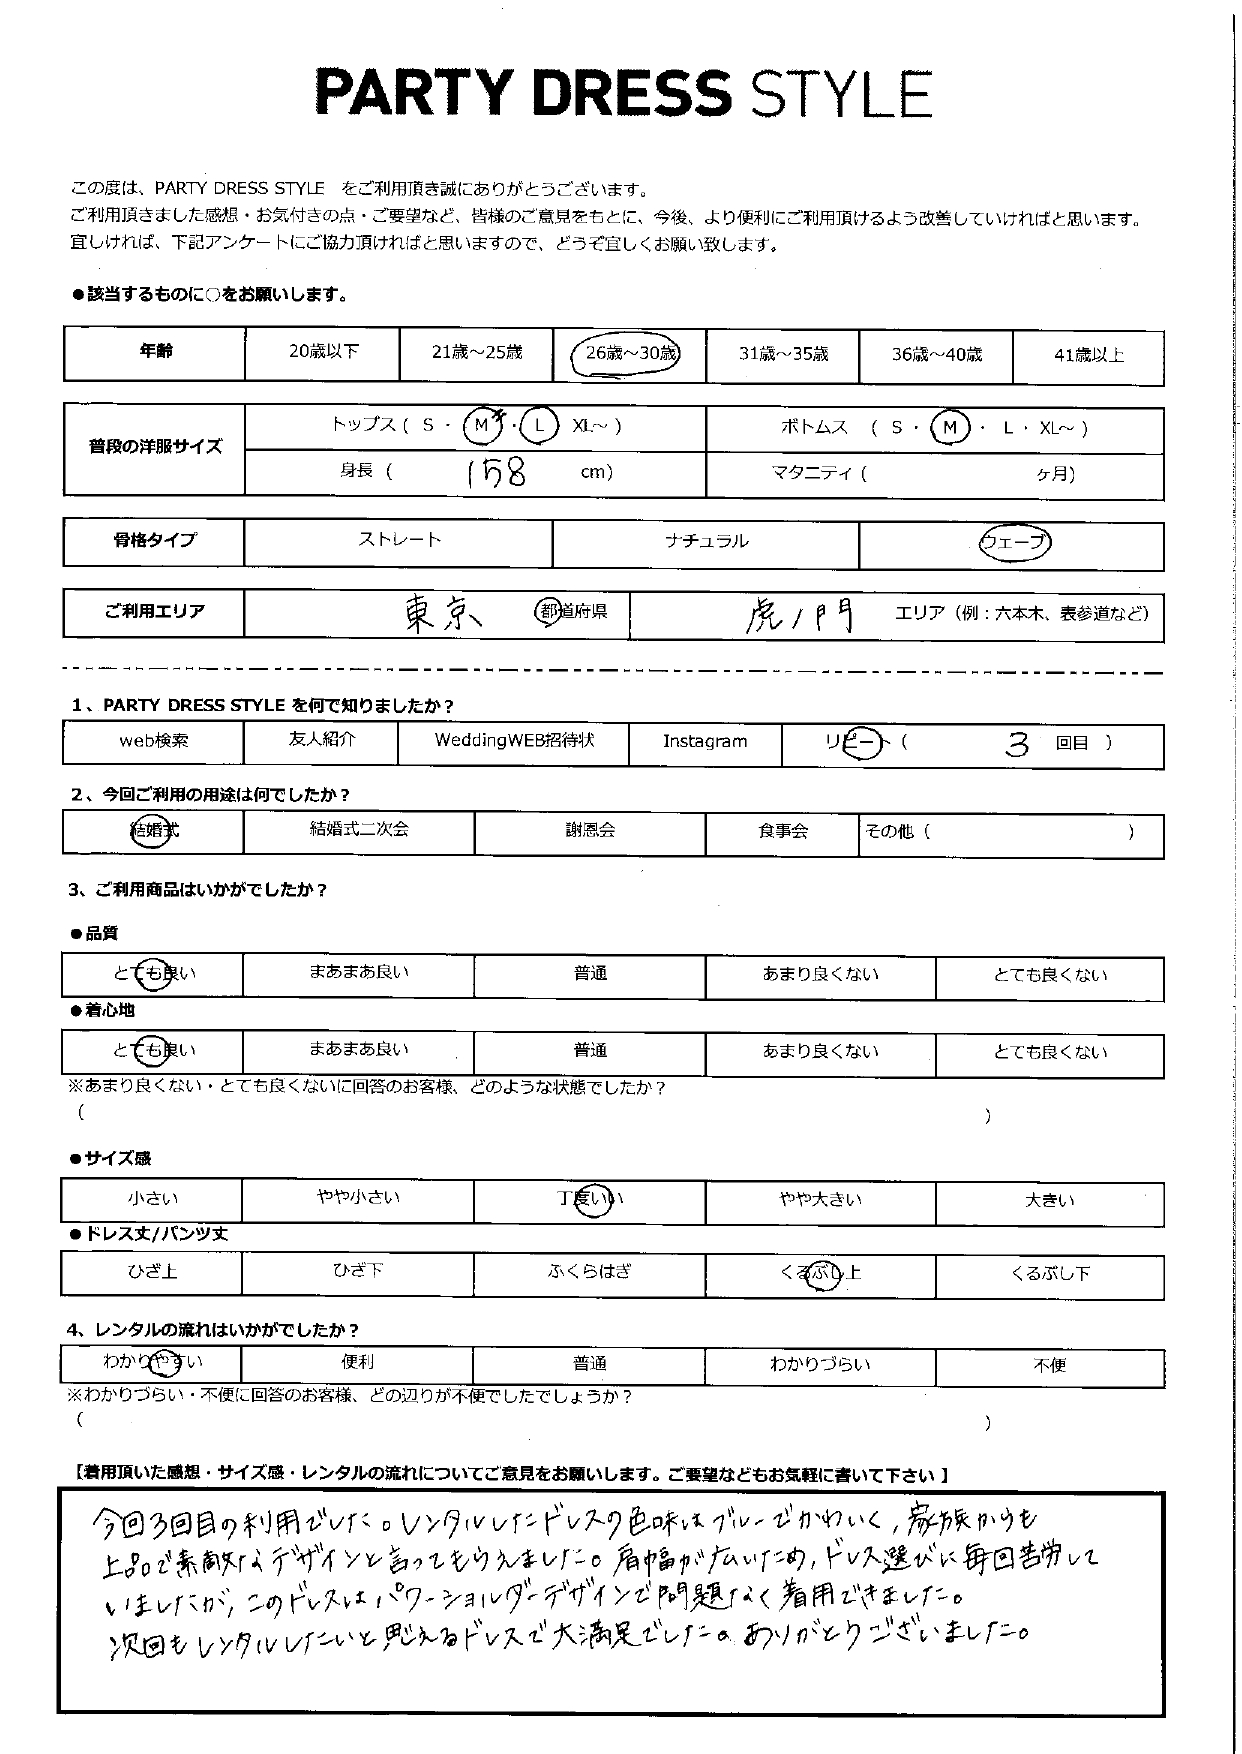 PARTY DRESS STYLE
この度は、PARTY DRESS STYLE をご利用頂き誠にありがとうございます。
ご利用頂きました感想・お気付きの点・ご要望など、皆様のご意見をもとに、今後、より便利にご利用頂けるよう改善していければと思います。
宜しければ、下記アンケートにご協力頂ければと思いますので、どうぞ宜しくお願い致します。
●該当するものに○をお願いします。
年齢 20歳以下 21歳～25歳 26歳～30歳 31歳～35歳 36歳～40歳 41歳以上
普段の洋服サイズ トップス ( S ・ M ・ L XL～ ) ボトムス ( S ・ M ・ L ・ XL～ )
身長 ( 158 cm) マタニティ ( ヶ月)
骨格タイプ ストレート ナチュラル ウェーブ
ご利用エリア 東京 都道府県 虎ノ門 エリア（例：六本木、表参道など）
1、PARTY DRESS STYLE を何で知りましたか？
web検索 友人紹介 WeddingWEB招待状 Instagram リピート ( 3 回目 )
2、今回ご利用の用途は何でしたか？
結婚式 結婚式二次会 謝恩会 食事会 その他 ( )
3、ご利用商品はいかがでしたか？
●品質
とても良い まあまあ良い 普通 あまり良くない とても良くない
●着心地
とても良い まあまあ良い 普通 あまり良くない とても良くない
※あまり良くない・とても良くないに回答のお客様、どのような状態でしたか？
( )
●サイズ感
小さい やや小さい 丁度いい やや大きい 大きい
●ドレス丈/パンツ丈
ひざ上 ひざ下 ふくらはぎ くるぶし上 くるぶし下
4、レンタルの流れはいかがでしたか？
わかりやすい 便利 普通 わかりづらい 不便
※わかりづらい・不便に回答のお客様、どの辺りが不便でしたでしょうか？
( )
【着用頂いた感想・サイズ感・レンタルの流れについてご意見をお願いします。ご要望などもお気軽に書いて下さい 】
今回3回目の利用でした。レンタルしたドレスの色味はブルーでかわいく,家族からも
上品で素敵なデザインと言ってもらえました。肩幅が広いため,ドレス選びに毎回苦労して
いましたが,このドレスはパワーショルダーデザインで問題なく着用できました。
次回もレンタルしたいと思えるドレスで大満足でした。ありがとうございました。